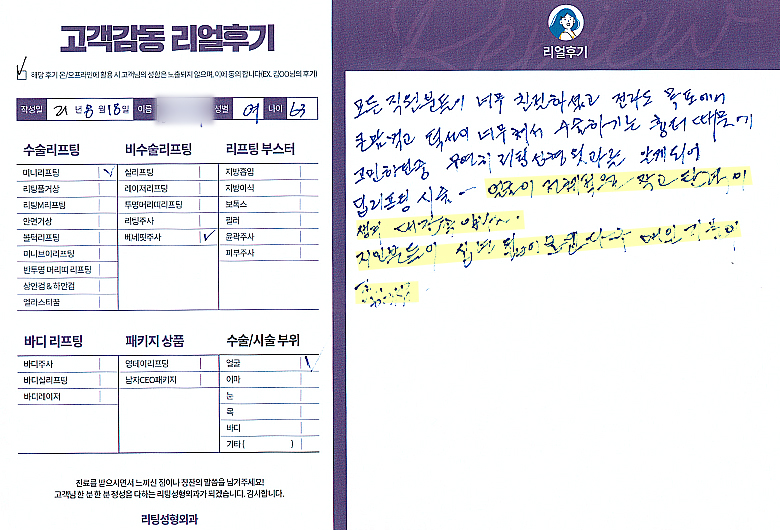 고객감동 리얼후기
해당 후기 온/오프라인에 활용 시 고객님의 성함은 노출되지 않으며, 이에 동의 합니다(EX. 김OO님의 후기)
작성일 21년 8월 18일 이름 성별 여 나이 63
수술리프팅
미니리프팅
리팅풀거상
리팅M리프팅
안면거상
볼턱리프팅
미니브이리프팅
반투명 머리띠 리프팅
상안검 & 하안검
엘라스티꿈
비수술리프팅
실리프팅
레이저리프팅
투명머리띠리프팅
리팅주사
버네핏주사
리프팅 부스터
지방흡입
지방이식
보톡스
필러
윤곽주사
피부주사
바디 리프팅
바디주사
바디실리프팅
바디레이저
패키지 상품
영데이리프팅
남자CEO패키지
수술/시술 부위
얼굴
이마
눈
목
바디
기타 ( )
진료를 받으시면서 느끼신 점이나 칭찬의 말씀을 남기주세요!
고객님 한 분 한 분 정성을 다하는 리팅성형외과가 되겠습니다. 감사합니다.
리팅성형외과
Review
리얼후기
모든 직원분들이 너무 친절하셨고 전라도 목포에서
큰맘먹고 턱선이 너무 쳐져서 수술하기는 형편 때문에
고민하던중 우연히 리팅성형외과를 알게되어
미니리프팅 시술 - 얼굴이 전체적으로 작고 탄력이
생겨 대만족입니다.
지인분들이 십년